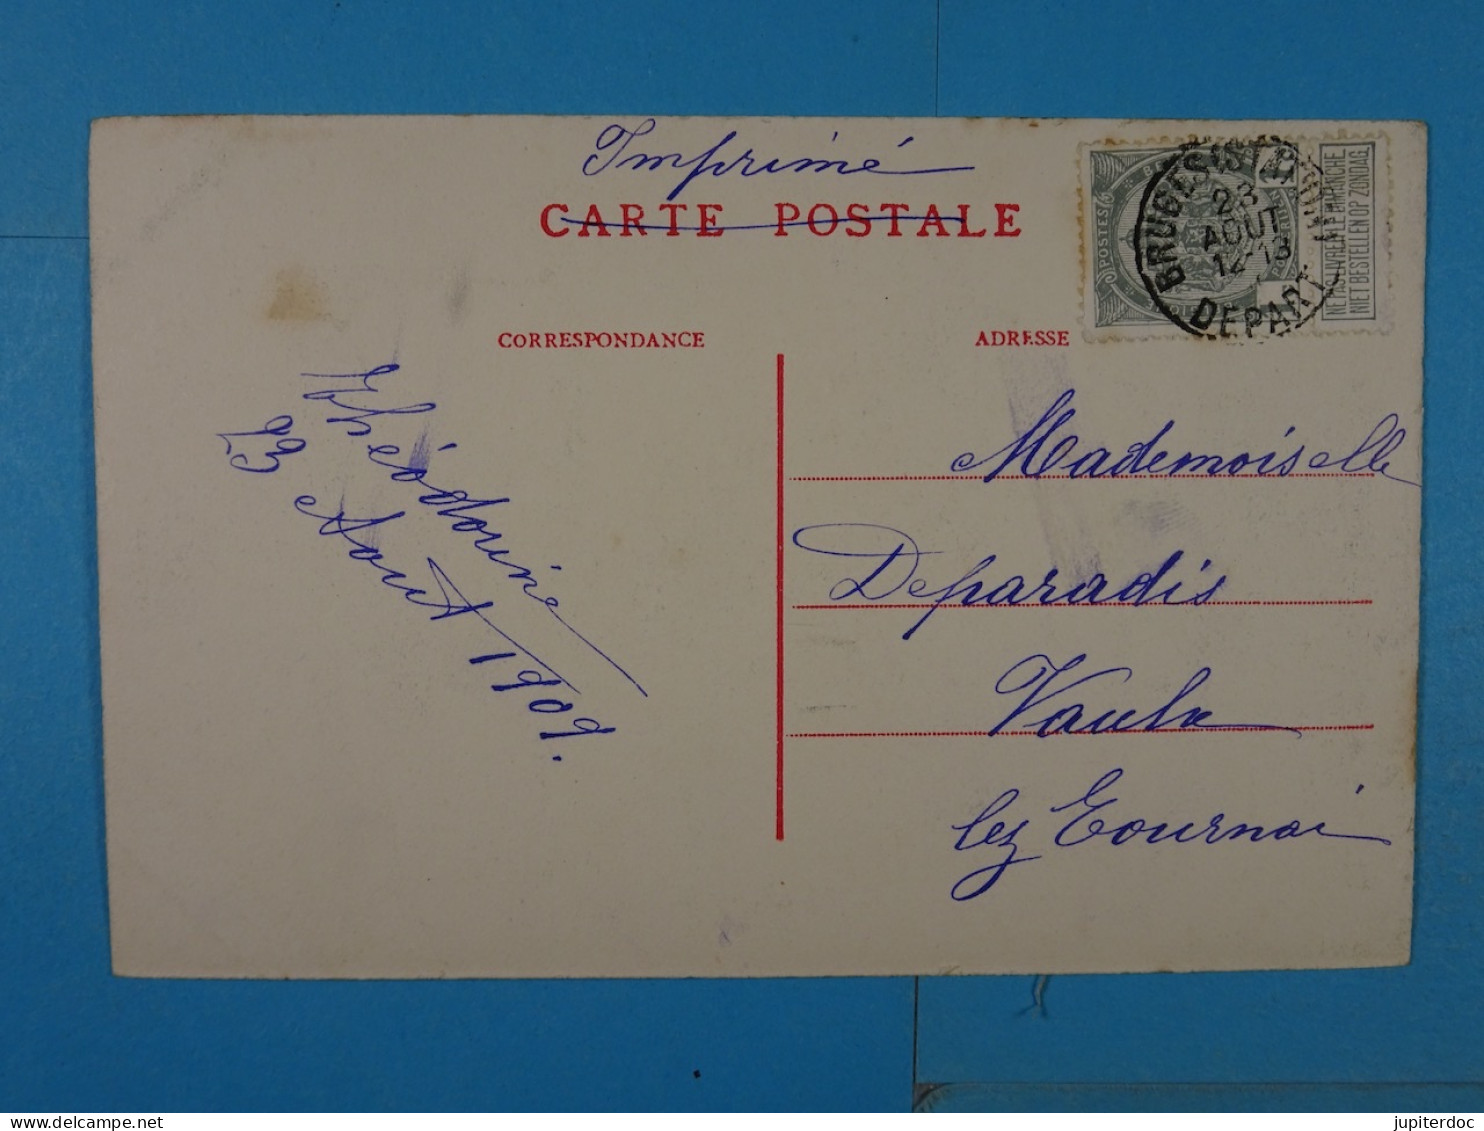 Imprimé
CARTE POSTALE
CORRESPONDANCE
ADRESSE
BRUGES (STATION)
23
AOUT
12-13
DEPART
POSTES
NE PAS LIVRER LE DIMANCHE
NIET BESTELLEN OP ZONDAG
Théodorine
23 Aout 1909.
Mademoiselle
Deparadis
Vaulx
lez Tournai
jupiterdoc